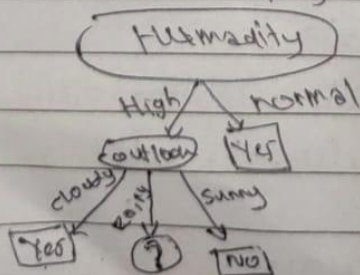 Humadity
High normal
outlook Yes
cloudy Rainy sunny
Yes ? No